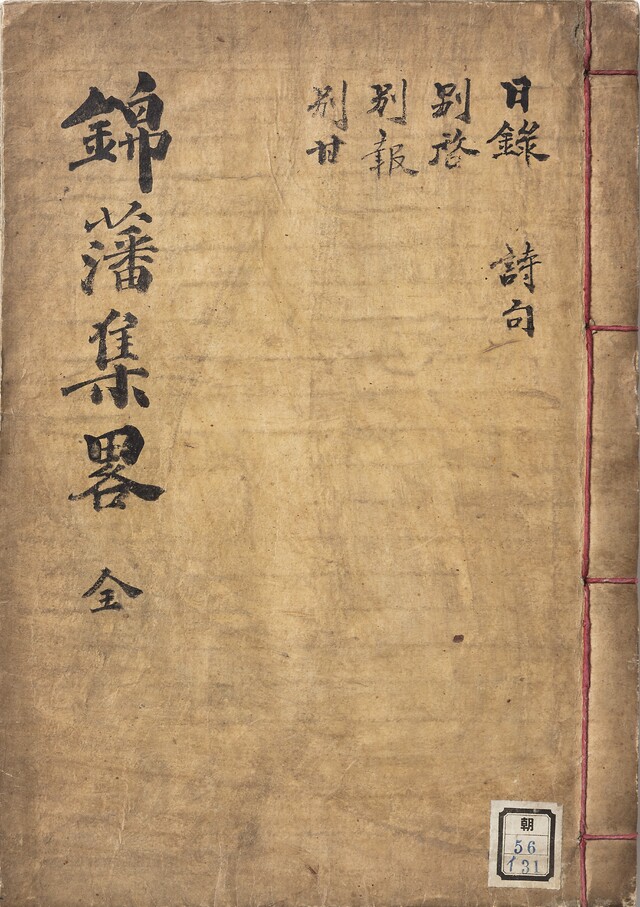 日錄　詩句
別啓
別報
別甘
錦藩集畧　全
朝
56
イ31